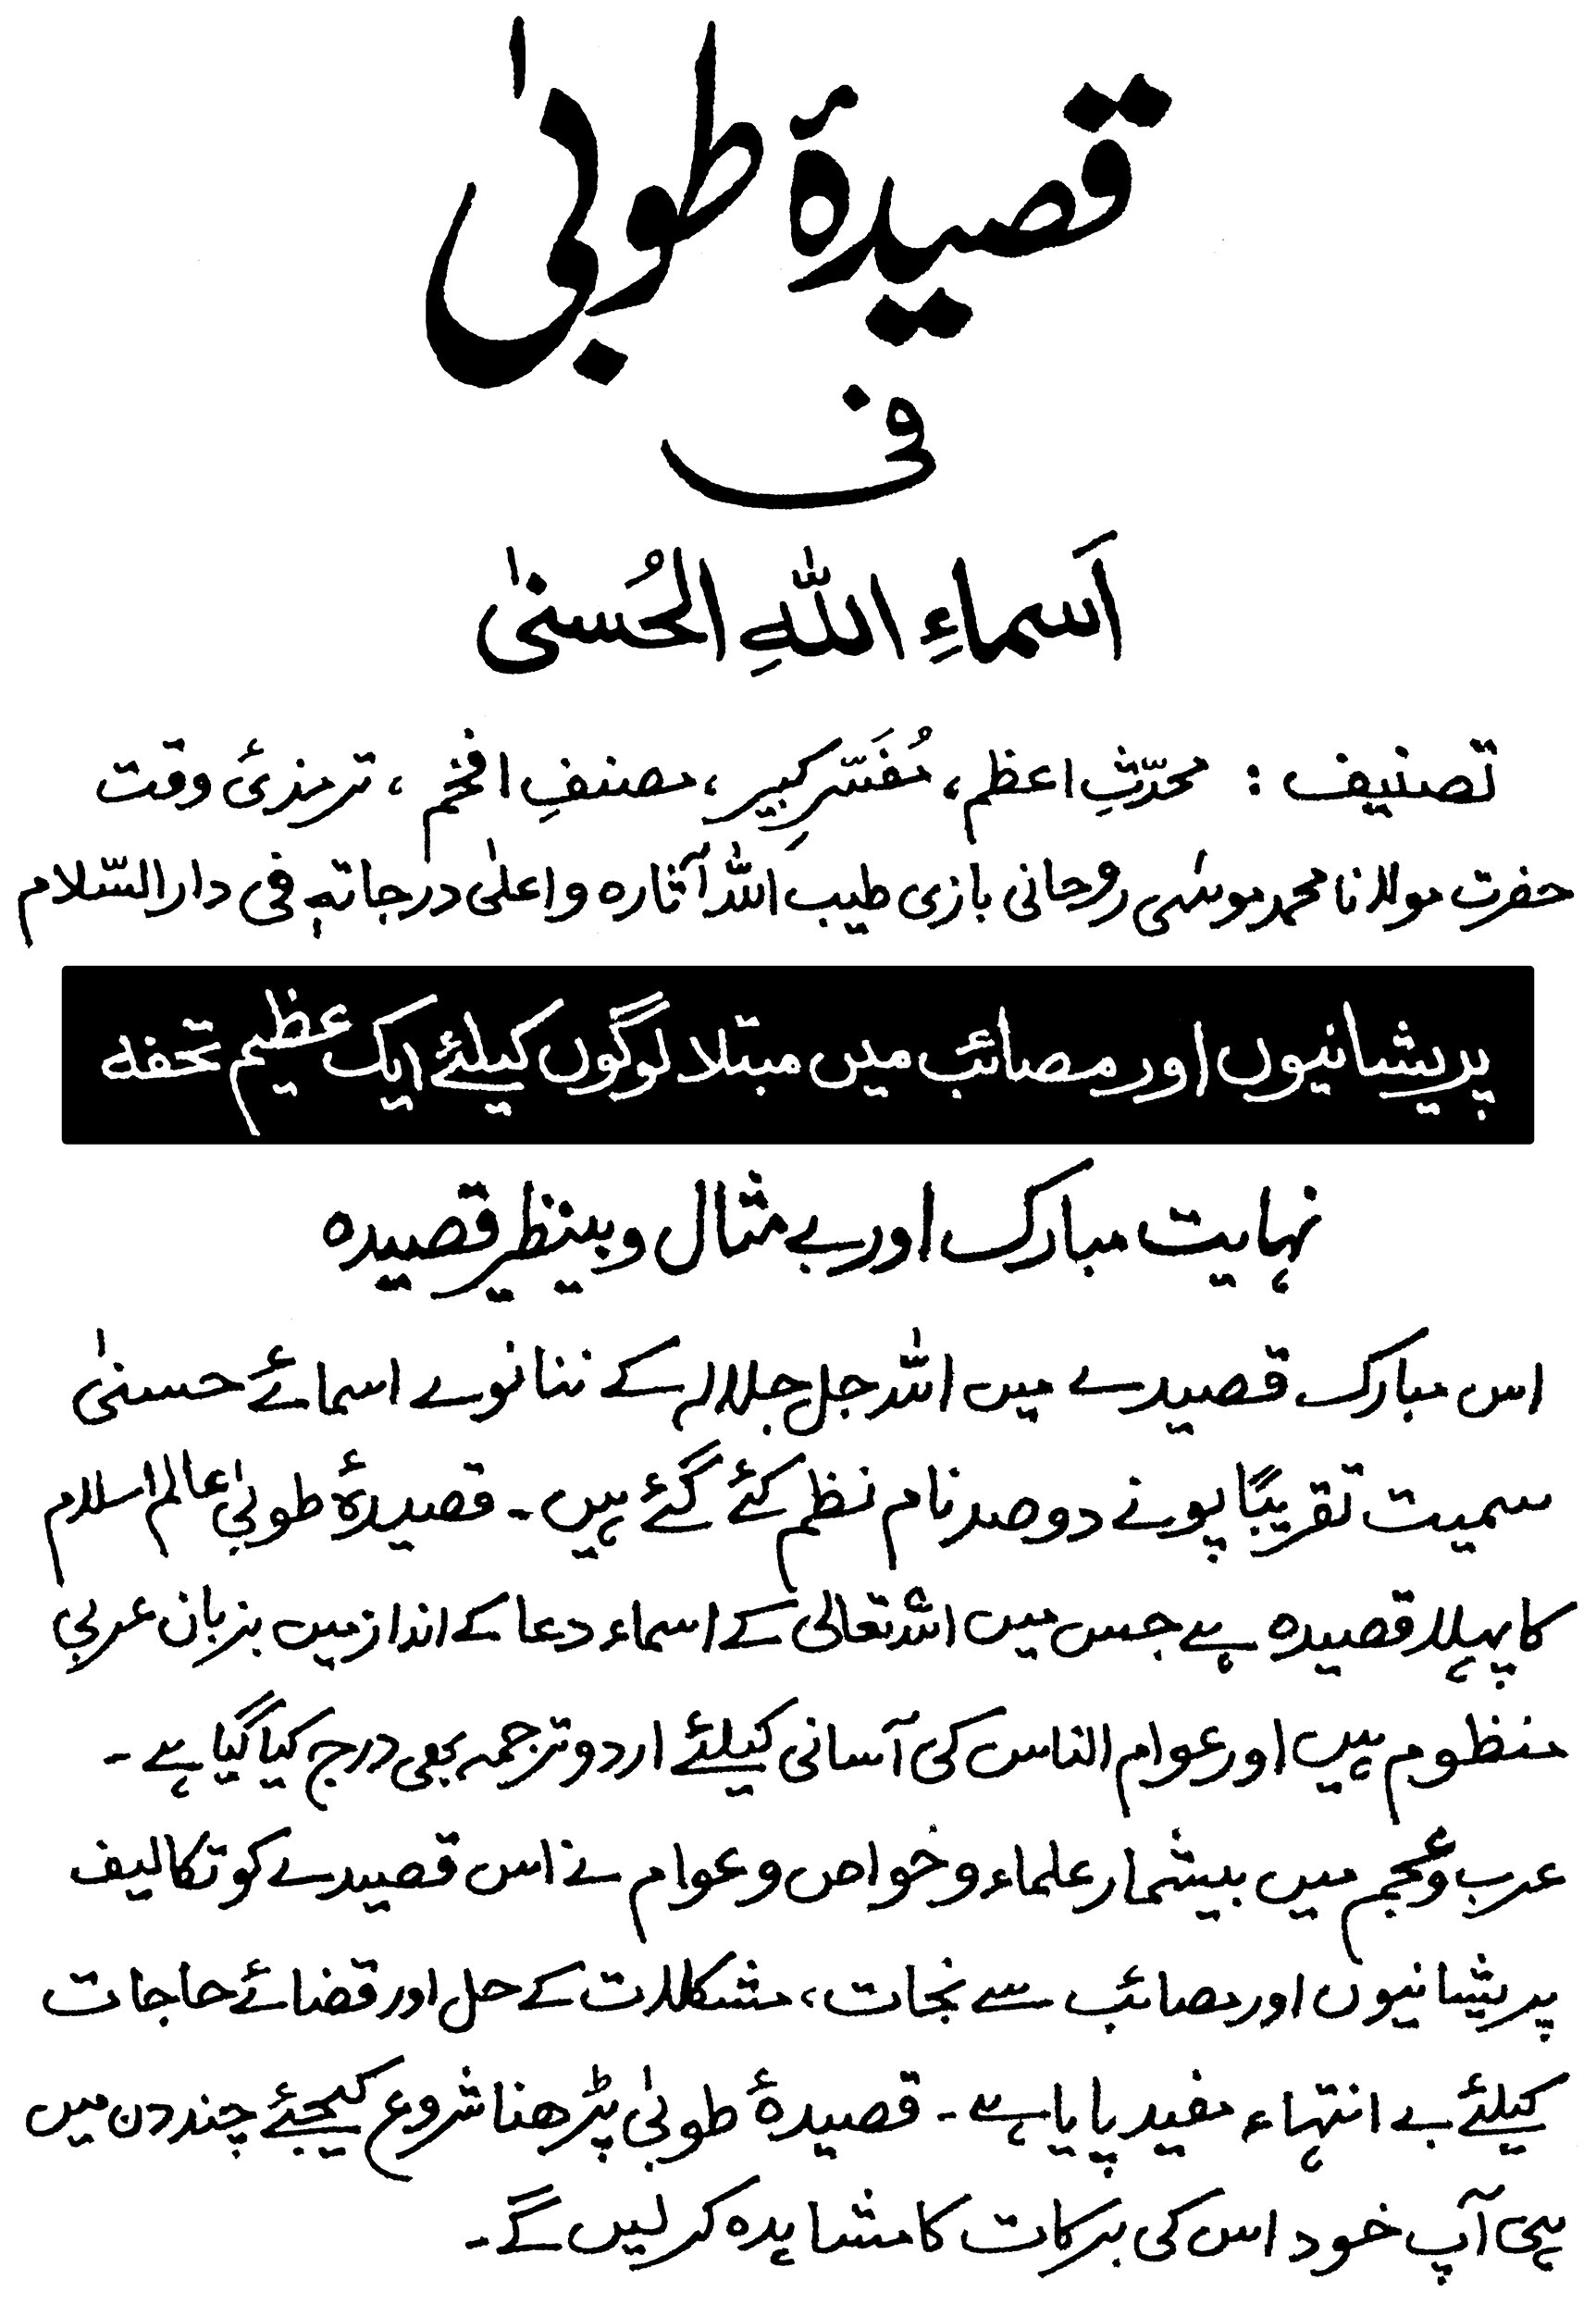 قصیدۂ طوبیٰ
فی
اَسماءِ اللہِ الحُسنیٰ
تصنیف : محدّثِ اعظم، مُفَسّرِ کبیر، مصنفِ افخم، ترمذیٔ وقت
حضرت مولانا محمد موسٰی روحانی بازی طیب اللہ آثارہ و اعلیٰ درجاتہٖ فی دار السّلام
پریشانیوں اور مصائب میں مبتلا لوگوں کیلئے ایک عظیم تحفہ
نہایت مبارک اور بے مثال و بینظیر قصیدہ
اس مبارک قصیدے میں اللہ جل جلالہ کے ننانوے اسمائے حسنیٰ
سمیت تقریبًا پونے دو صد نام نظم کئے گئے ہیں۔ قصیدۂ طوبیٰ عالم اسلام
کا پہلا قصیدہ ہے جس میں اللہ تعالیٰ کے اسماء دعا کے انداز میں بزبان عربی
منظوم ہیں اور عوام الناس کی آسانی کیلئے اردو ترجمہ بھی درج کیا گیا ہے۔
عرب و عجم میں بیشمار علماء و خواص و عوام نے اس قصیدے کو تکالیف
پریشانیوں اور مصائب سے نجات، مشکلات کے حل اور قضائے حاجات
کیلئے بے انتہاء مفید پایا ہے۔ قصیدۂ طوبیٰ پڑھنا شروع کیجئے چند دن میں
ہی آپ خود اس کی برکات کا مشاہدہ کر لیں گے۔